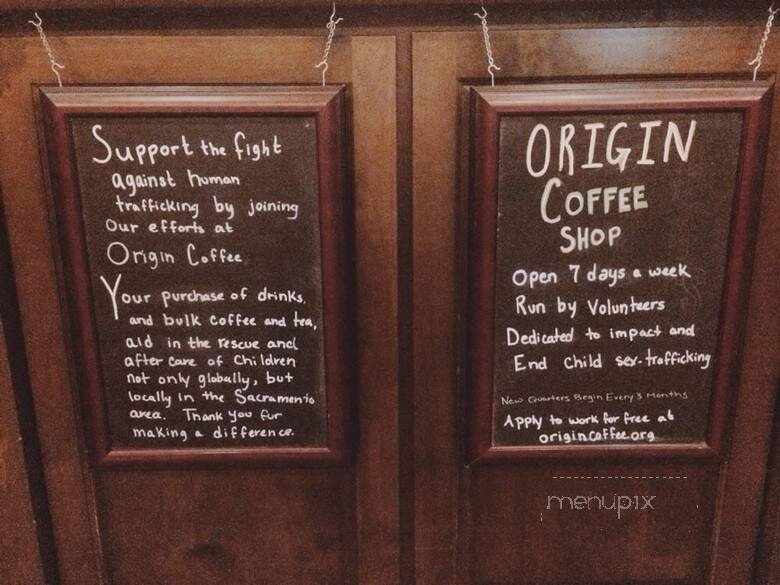 Support the fight
against human
trafficking by joining
Our efforts at
Origin Coffee
Your purchase of drinks,
and bulk coffee and tea,
aid in the rescue and
after care of Children
not only globally, but
locally in the Sacramento
area. Thank you for
making a difference.
ORIGIN
COFFEE
SHOP
Open 7 days a week
Run by Volunteers
Dedicated to impact and
End Child sex-trafficking
New Quarters Begin Every 3 Months
Apply to work for free at
origincoffee.org
menupix